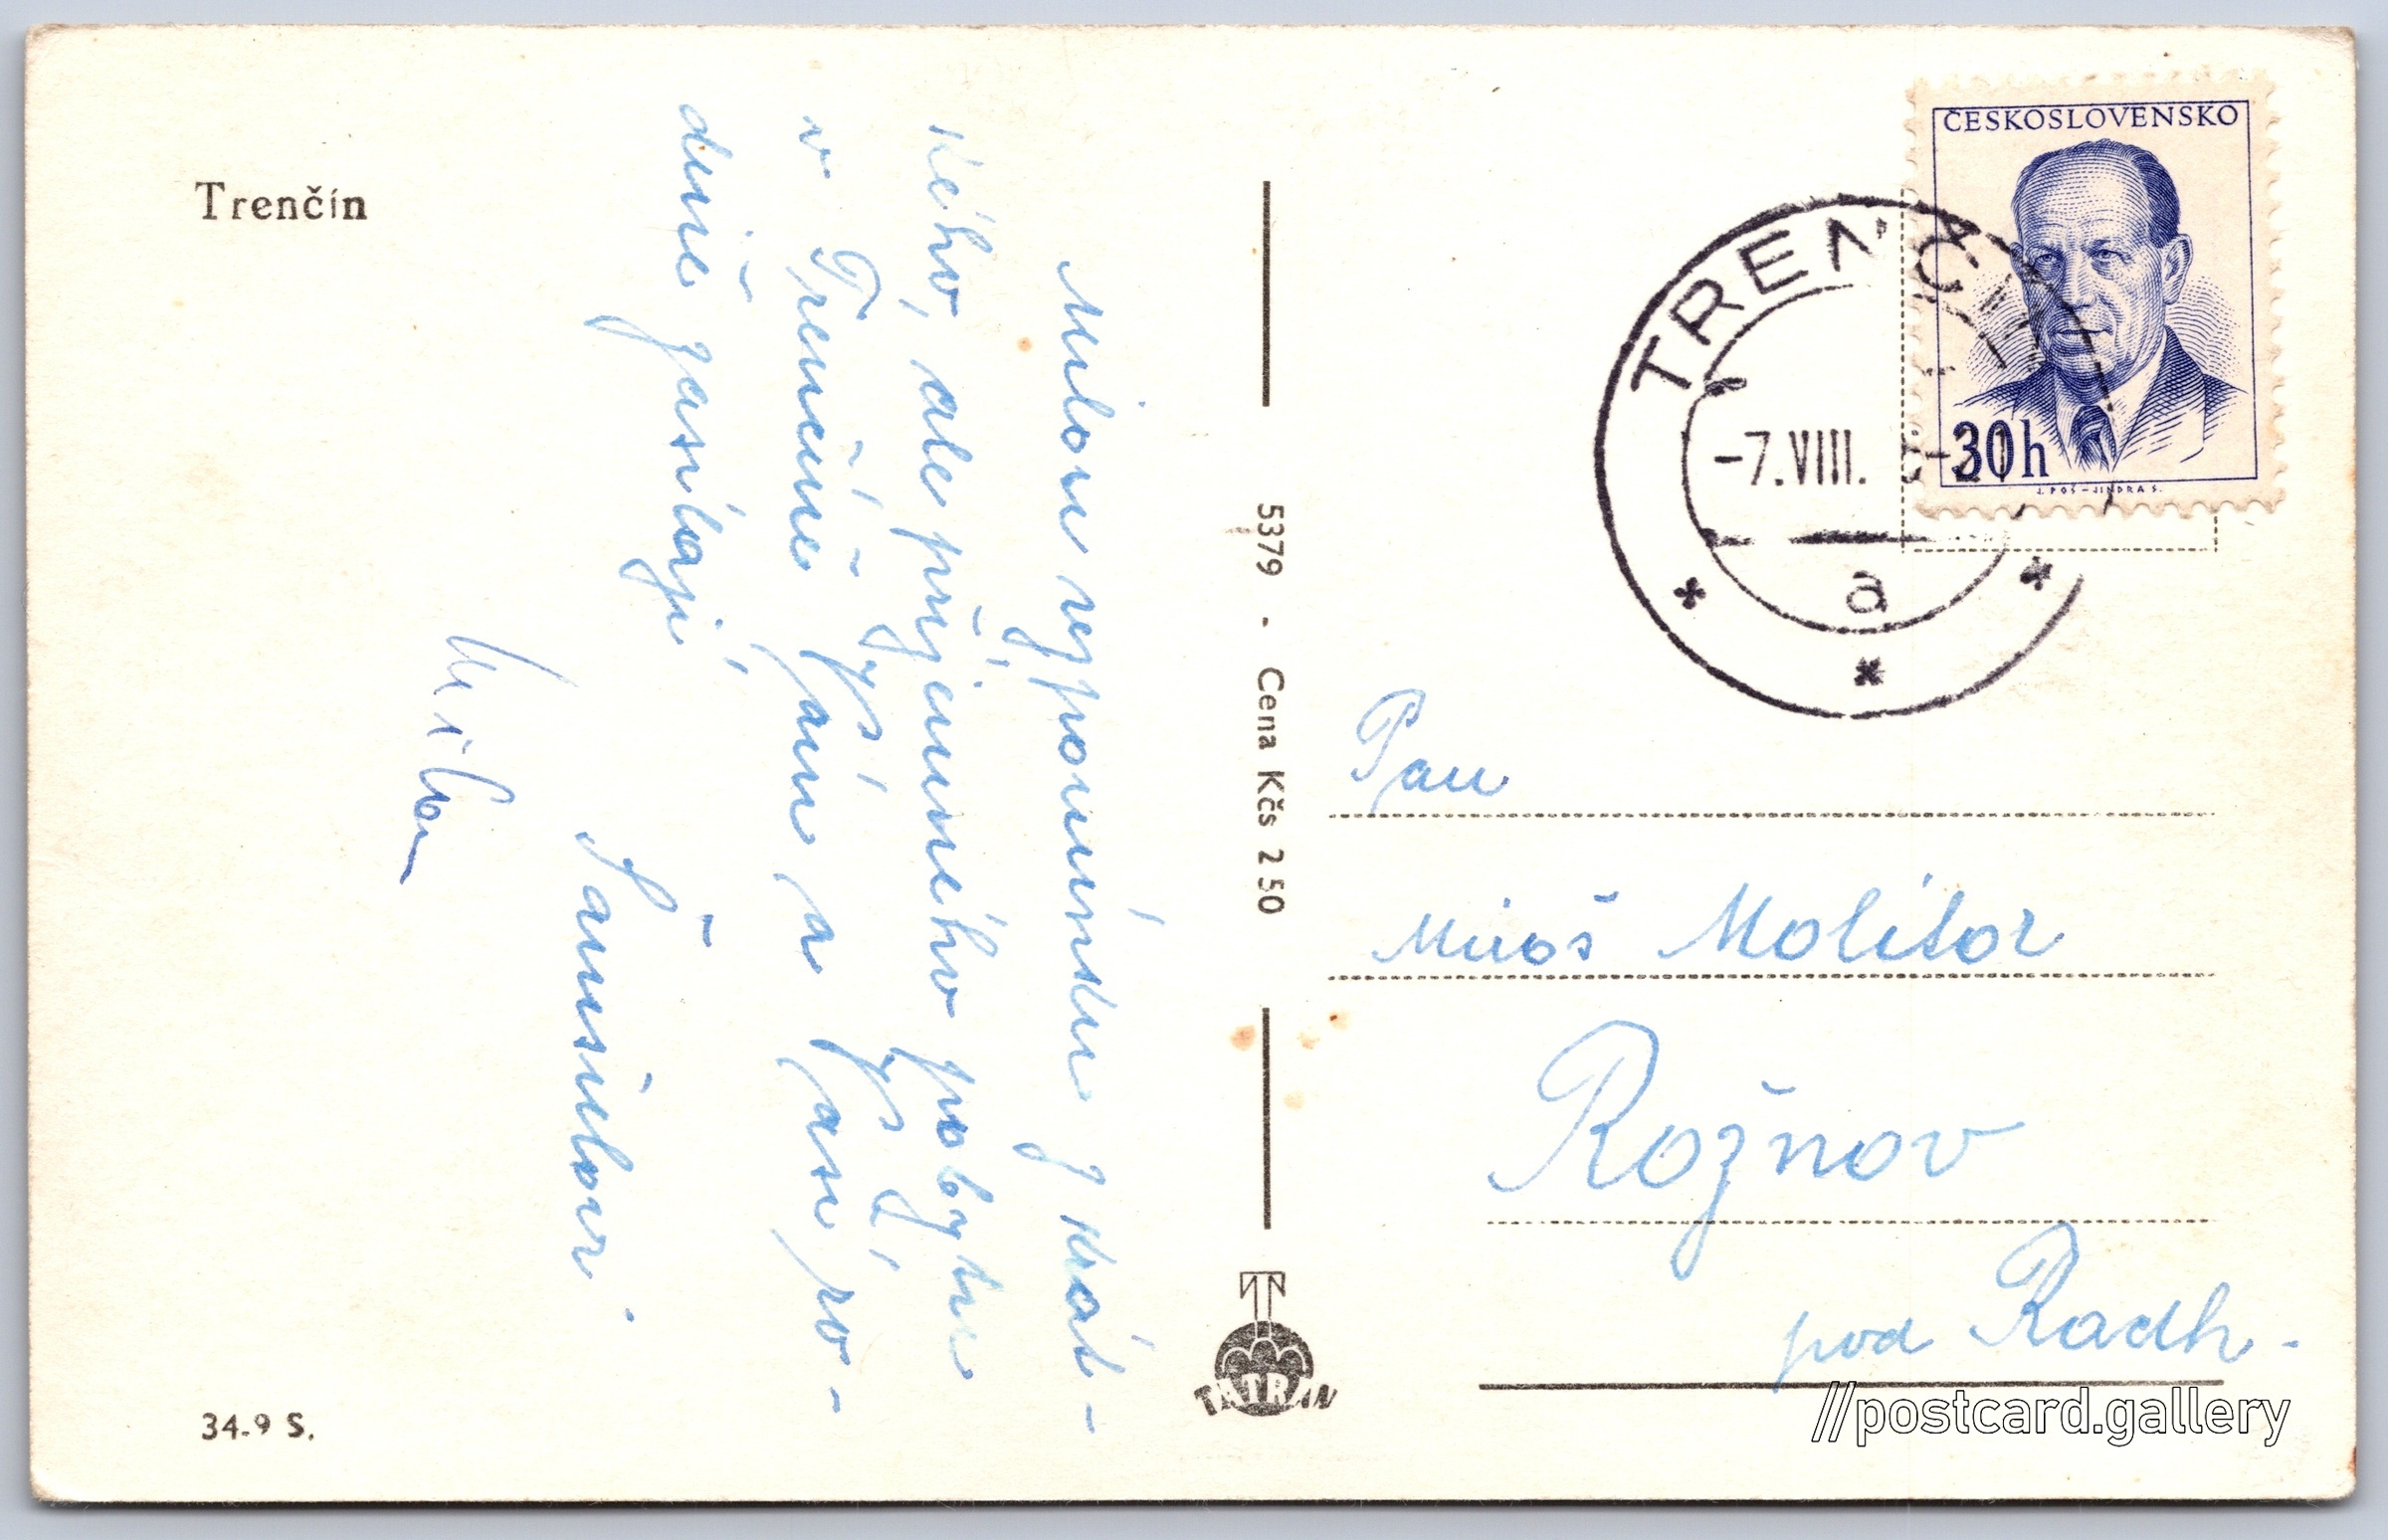 Trenčín
Milou vzpomínku z krát-
kého, ale příjemného pobytu
v Trenčíně Vám a Vaší ro-
dině zasílají
Šamšulovi.
Milan
34-9 S.
5379 - Cena Kčs 2 50
TATRAN
ČESKOSLOVENSKO
30h
J. POŠ – JINDRA S.
TRENČÍN
-7.VIII.
a
Pan
Miloš Molitor
Rožnov
pod Radh.
//postcard.gallery